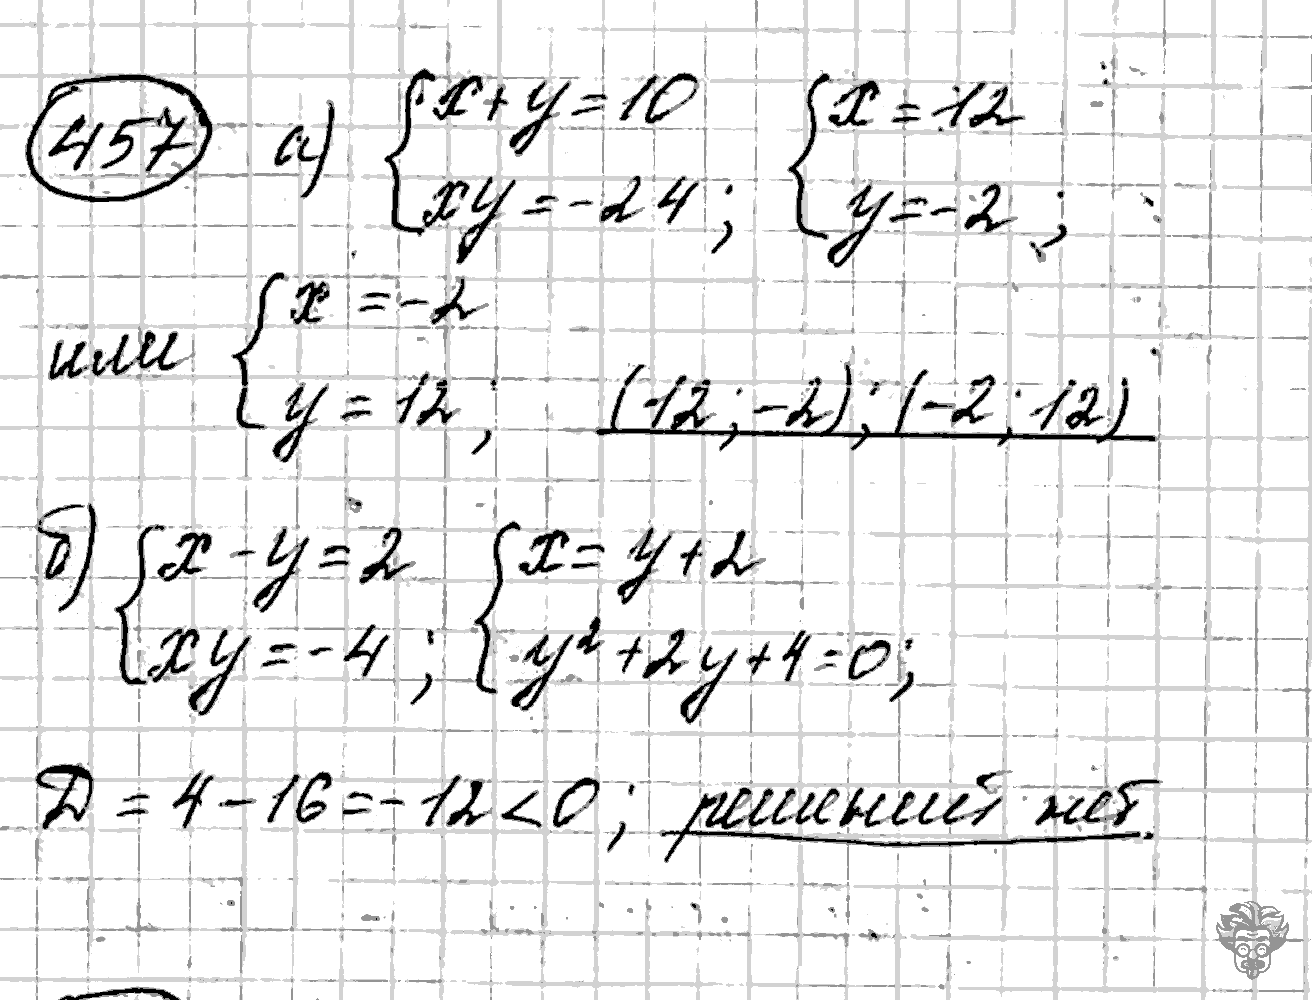 457 а) { x + y = 10
xy = -24; { x = 12
y = -2;
или { x = -2
y = 12; (12; -2); (-2; 12)
б) { x - y = 2
xy = -4; { x = y + 2
y² + 2y + 4 = 0;
D = 4 - 16 = -12 < 0; решений нет.